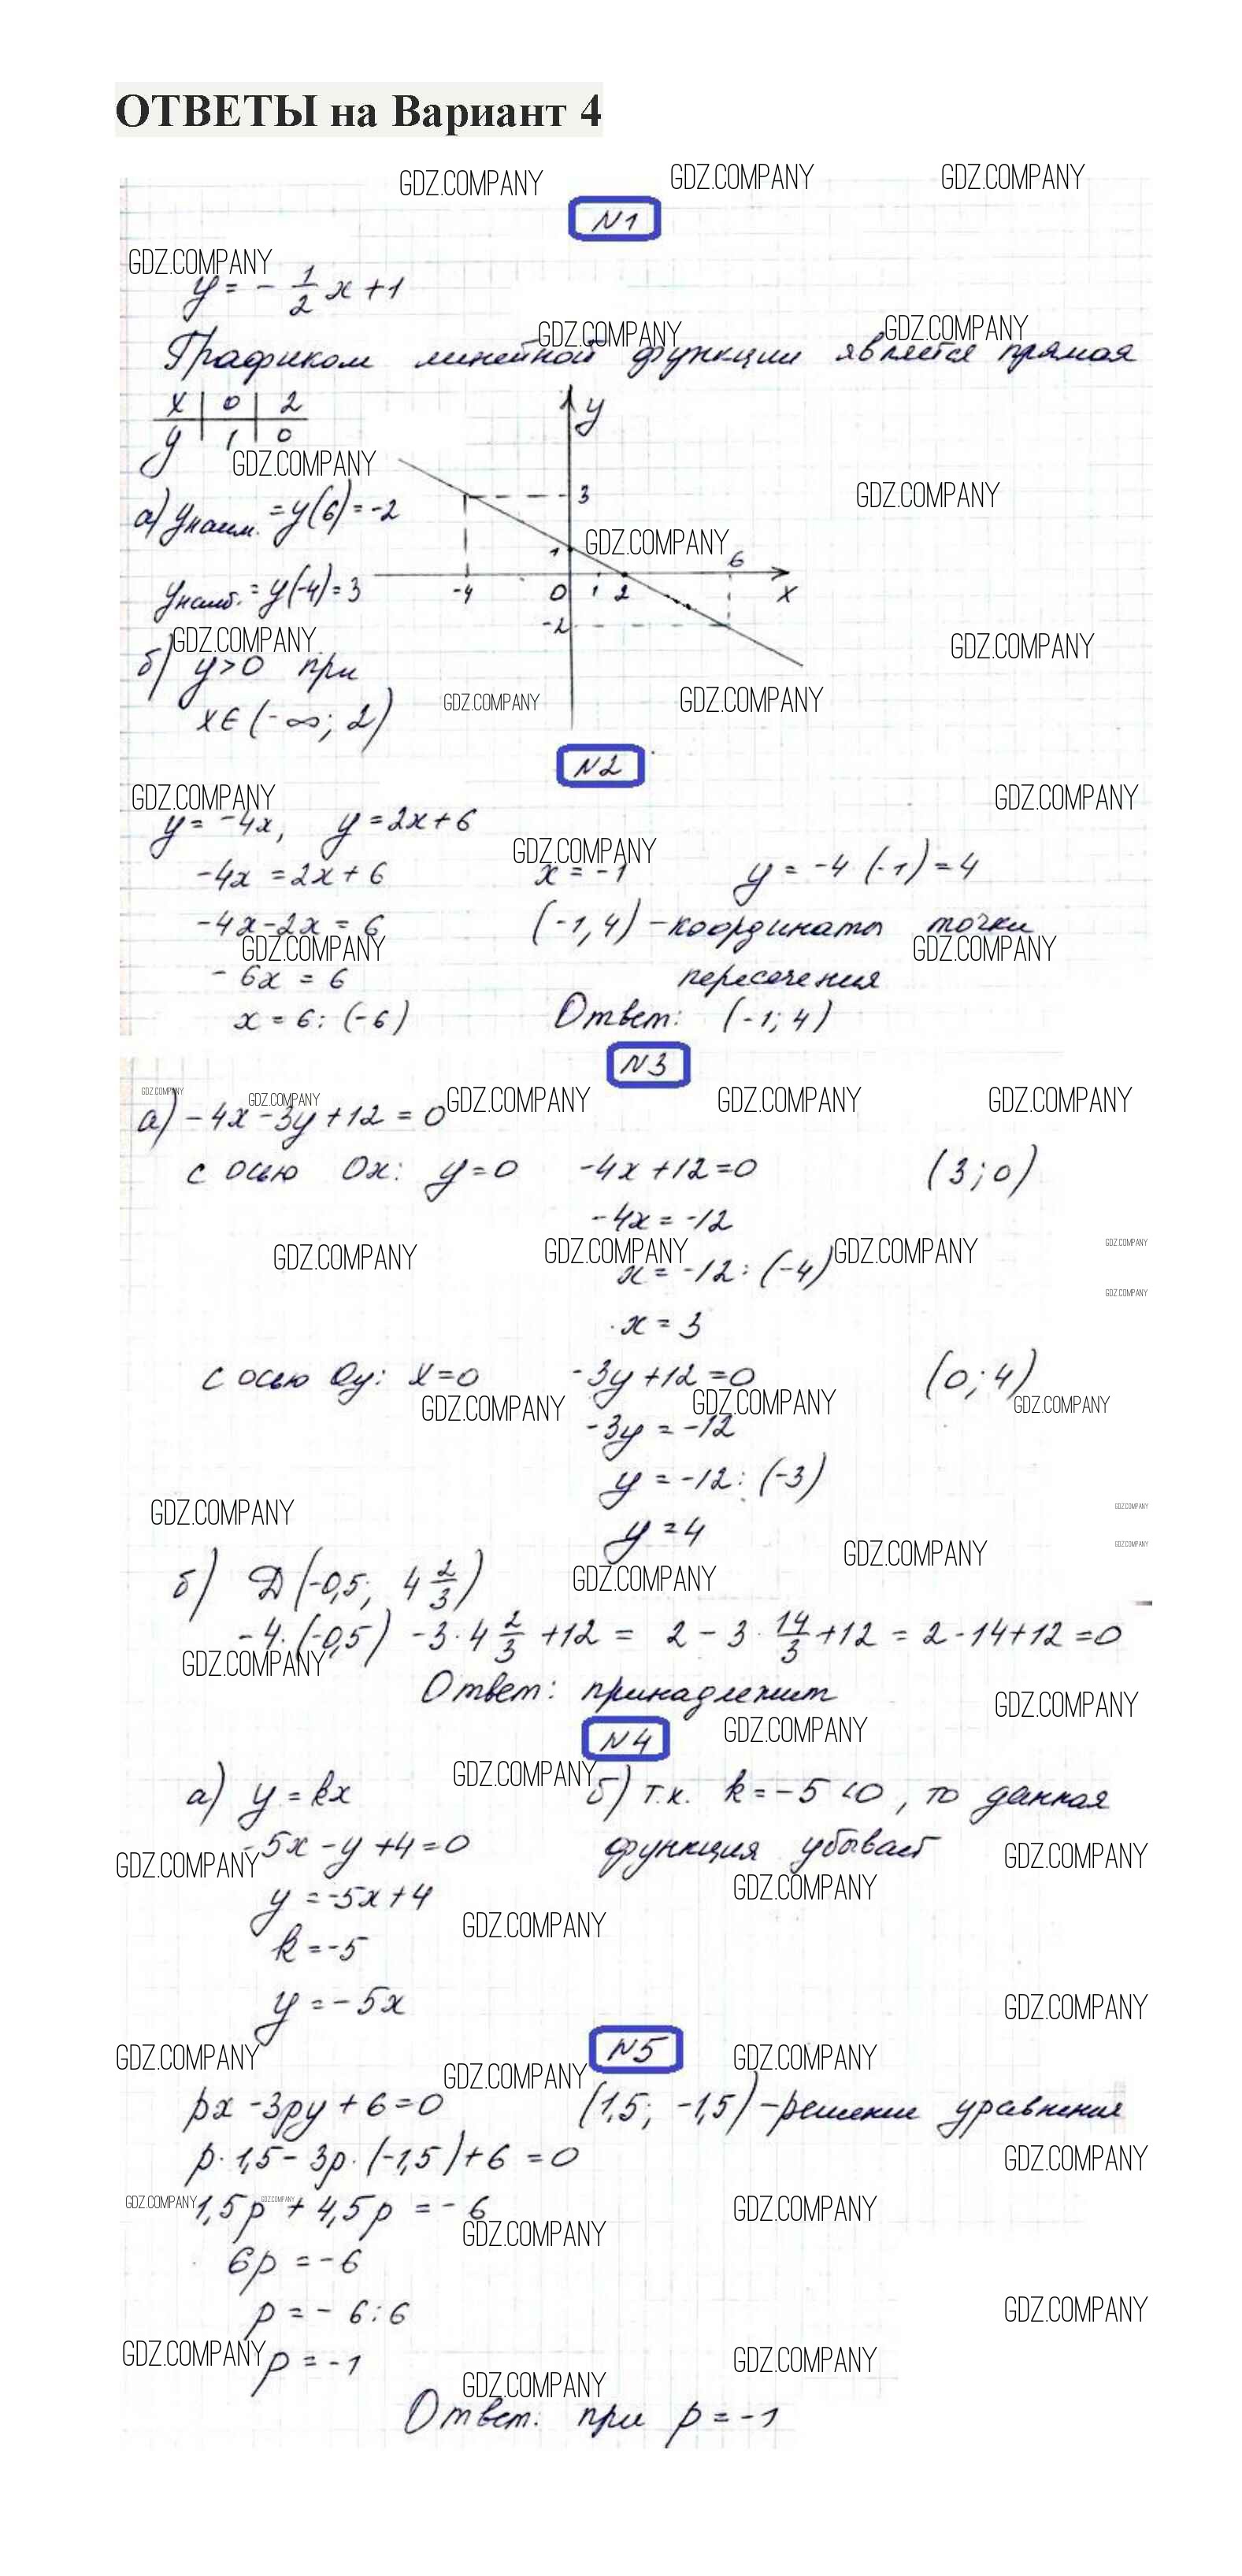 ОТВЕТЫ на Вариант 4
GDZ.COMPANY GDZ.COMPANY GDZ.COMPANY
N1
GDZ.COMPANY
y = - 1/2 x + 1
GDZ.COMPANY GDZ.COMPANY
Графиком линейной функции является прямая
x | 0 | 2
y | 1 | 0
y
GDZ.COMPANY
3
GDZ.COMPANY
а) yнаим. = y(6) = -2
1 GDZ.COMPANY 6
-4 0 1 2 x
yнаиб. = y(-4) = 3
-2
GDZ.COMPANY GDZ.COMPANY
б) y > 0 при
GDZ.COMPANY GDZ.COMPANY
x ∈ (-∞; 2)
N2
GDZ.COMPANY GDZ.COMPANY
y = -4x, y = 2x + 6
GDZ.COMPANY
-4x = 2x + 6 x = -1 y = -4·(-1) = 4
-4x - 2x = 6 (-1, 4) - координаты точки
GDZ.COMPANY GDZ.COMPANY
-6x = 6 пересечения
x = 6 : (-6) Ответ: (-1; 4)
N3
GDZ.COMPANY GDZ.COMPANY GDZ.COMPANY GDZ.COMPANY GDZ.COMPANY
а) -4x - 3y + 12 = 0
с осью Ox: y = 0 -4x + 12 = 0 (3; 0)
-4x = -12
GDZ.COMPANY GDZ.COMPANY GDZ.COMPANY GDZ.COMPANY
x = -12 : (-4)
GDZ.COMPANY
x = 3
с осью Oy: x = 0 -3y + 12 = 0 (0; 4)
GDZ.COMPANY GDZ.COMPANY GDZ.COMPANY
-3y = -12
y = -12 : (-3)
GDZ.COMPANY GDZ.COMPANY
y = 4
GDZ.COMPANY GDZ.COMPANY
б) D(-0,5; 4 2/3) GDZ.COMPANY
-4·(-0,5) - 3·4 2/3 + 12 = 2 - 3·14/3 + 12 = 2 - 14 + 12 = 0
GDZ.COMPANY
Ответ: принадлежит
GDZ.COMPANY
N4 GDZ.COMPANY
GDZ.COMPANY
а) y = kx б) т.к. k = -5 < 0, то данная
-5x - y + 4 = 0 функция убывает
GDZ.COMPANY GDZ.COMPANY
GDZ.COMPANY
y = -5x + 4
GDZ.COMPANY
k = -5
y = -5x
GDZ.COMPANY
N5
GDZ.COMPANY GDZ.COMPANY GDZ.COMPANY
px - 3py + 6 = 0 (1,5; -1,5) - решение уравнения
p·1,5 - 3p·(-1,5) + 6 = 0
GDZ.COMPANY
GDZ.COMPANY GDZ.COMPANY GDZ.COMPANY
1,5p + 4,5p = -6
GDZ.COMPANY
6p = -6
p = -6 : 6
GDZ.COMPANY
GDZ.COMPANY GDZ.COMPANY
p = -1
GDZ.COMPANY
Ответ: при p = -1